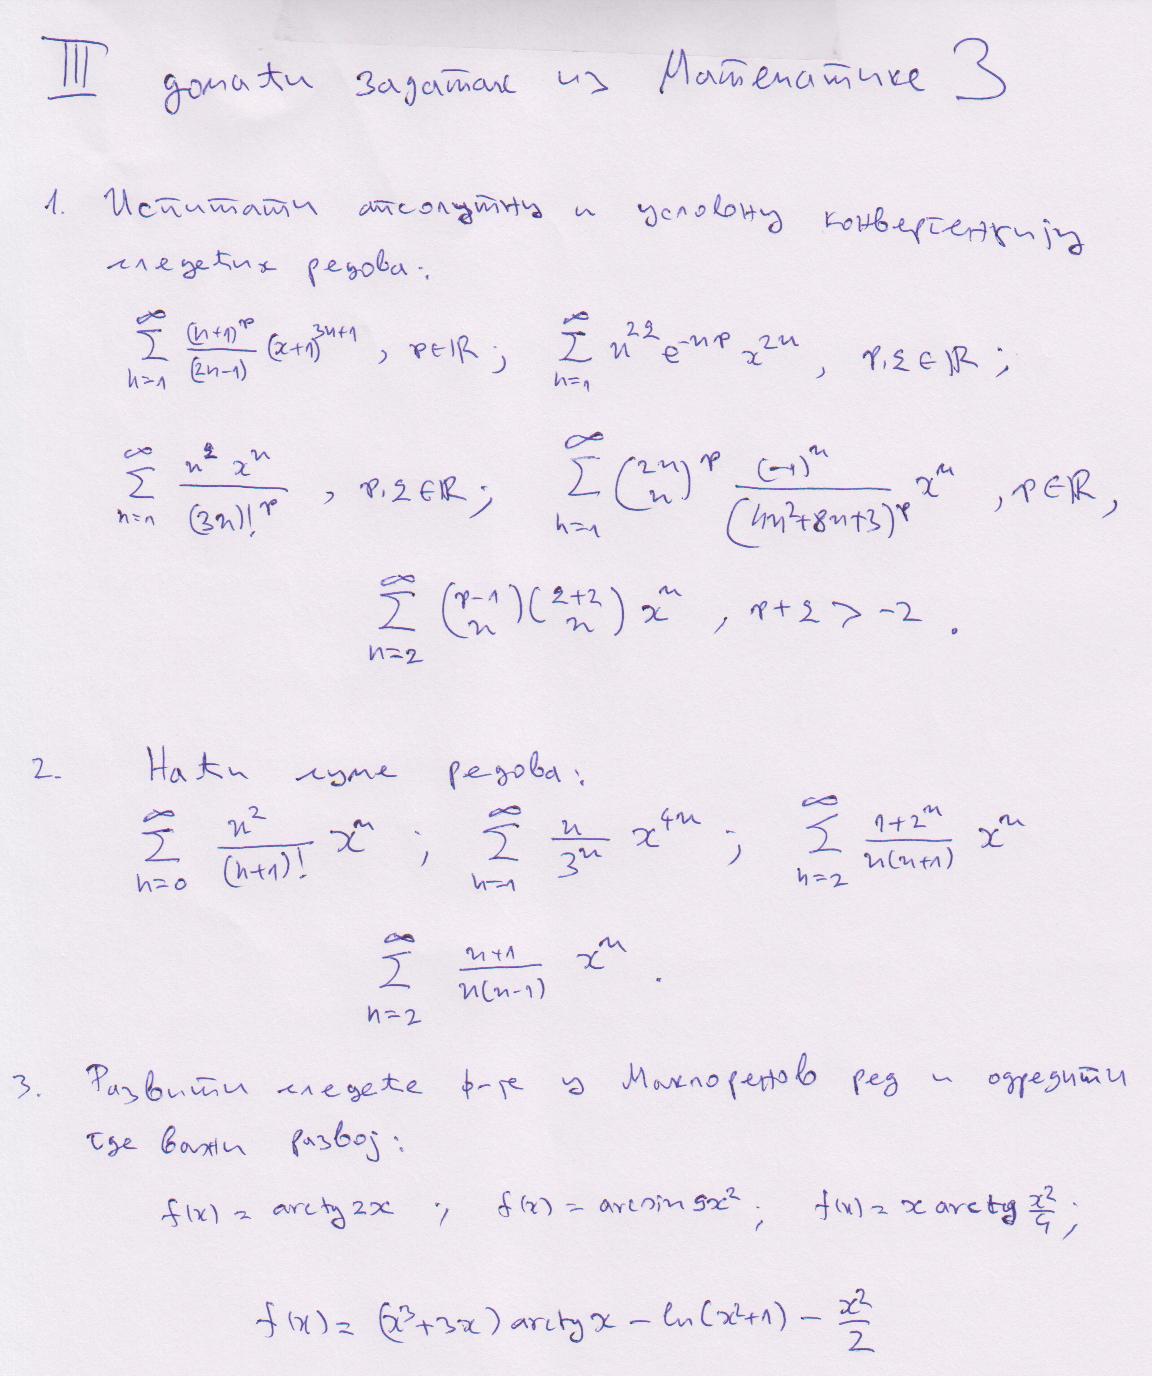 III домаћи задатак из Математике 3
1. Испитати апсолутну и условну конвергенцију
следећих редова:
\sum_{n=1}^{\infty} \frac{(n+1)^p}{(2n-1)} (x+1)^{3n+1}, p∈ℝ; \sum_{n=1}^{\infty} n^{2q} e^{-np} x^{2n}, p,q∈ℝ;
\sum_{n=1}^{\infty} \frac{n^q x^n}{(3n)!^p}, p,q∈ℝ; \sum_{n=1}^{\infty} \binom{2n}{n}^p \frac{(-1)^n}{(4n^2+8n+3)^p} x^n, p∈ℝ,
\sum_{n=2}^{\infty} \binom{p-1}{n} \binom{q+2}{n} x^n, p+q > -2.
2. Наћи суме редова:
\sum_{n=0}^{\infty} \frac{n^2}{(n+1)!} x^n; \sum_{n=1}^{\infty} \frac{n}{3^n} x^{4n}; \sum_{n=2}^{\infty} \frac{1+2^n}{n(n+1)} x^n
\sum_{n=2}^{\infty} \frac{n+1}{n(n-1)} x^n.
3. Развити следеће ф-је у Маклоренов ред и одредити
где важи развој:
f(x) = arctg 2x; f(x) = arcsin 5x^2; f(x) = x arctg \frac{x^2}{4};
f(x) = (x^3+3x) arctg x - ln(x^2+1) - \frac{x^2}{2}